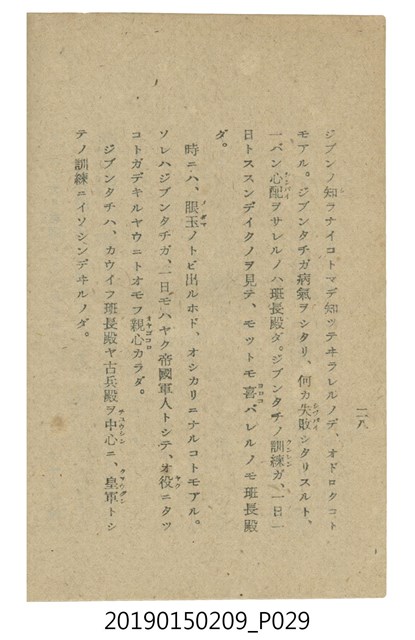 ジブンノ知ラナイコトマデ知ッテヰラレルノデ、オドロクコト
モアル。ジブンタチガ病氣ヲシタリ、何カ失敗シタリスルト、
一バン心配ヲサレルノハ班長殿ダ。ジブンタチノ訓練ガ、一日一
日トススンデイクノヲ見テ、モットモ喜バレルノモ班長殿
ダ。
時ニハ、眼玉ノトビ出ルホド、オシカリニナルコトモアル。
ソレハジブンタチガ、一日モハヤク帝國軍人トシテ、オ役ニタツ
コトガデキルヤウニトオモフ親心カラダ。
ジブンタチハ、カウイフ班長殿ヤ古兵殿ヲ中心ニ、皇軍トシ
テノ訓練ニイソシンデヰルノダ。
二八
20190150209_P029